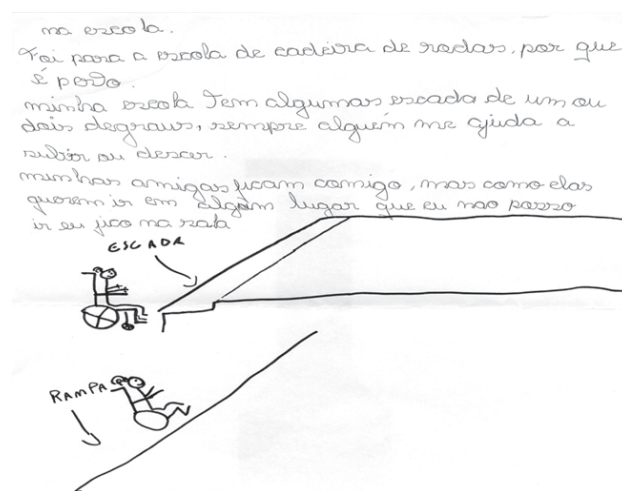 na escola.
Foi para a escola de cadeira de rodas, por que
é perto.
minha escola Tem algumas escada de um ou
dois degraus, sempre alguém me ajuda a
subir ou descer.
minhas amigas ficam comigo, mas como elas
querem ir em algum lugar que eu nao posso
ir eu fico na sala
ESCADA
RAMPA